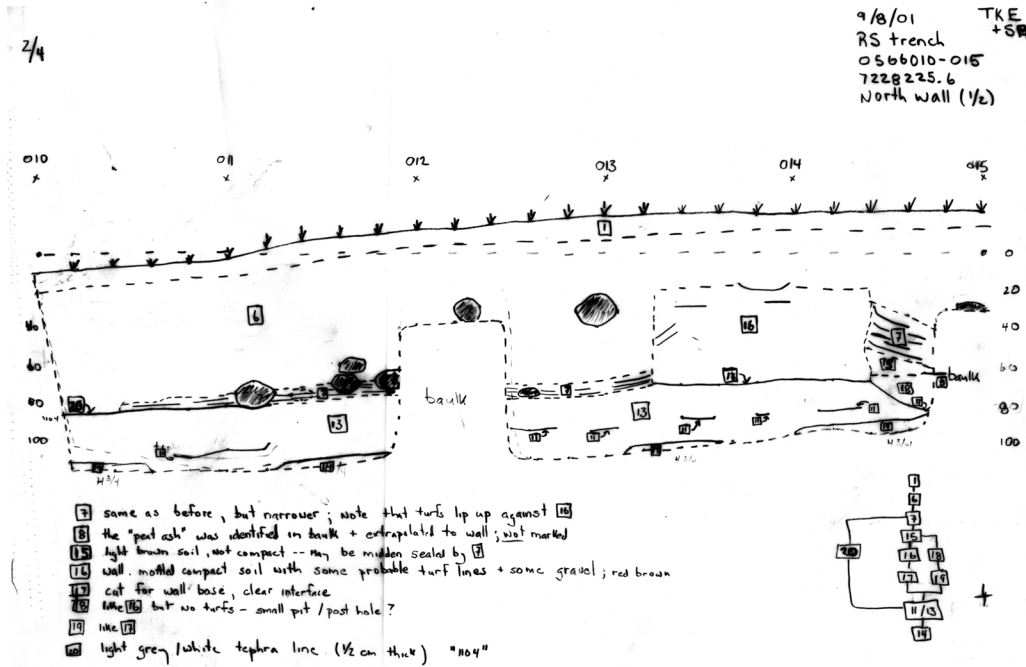 2/4
9/8/01 TKE
+SB
RS trench
0566010-015
7228225.6
North wall (1/2)
010 011 012 013 014 015
1
0
20
6 16 40
7
60
60
15
baulk
80
20 7 baulk 7 17 18
13 13 11 80
1104
11 11 11 11
100 100
14 14 14 14
H3/4 H3/4
7 same as before, but narrower; note that turfs lip up against 16
8 the "peat ash" was identified in baulk + extrapolated to wall; not marked
15 light brown soil, not compact -- may be midden sealed by 7
16 wall. mottled compact soil with some probable turf lines + some gravel; red brown
17 cut for wall base, clear interface
18 like 16 but no turfs - small pit / post hole?
19 like 17
20 light grey/white tephra line (1/2 cm thick) "1104"
1
6
7
15
20 16 18
17 19
11/13
14